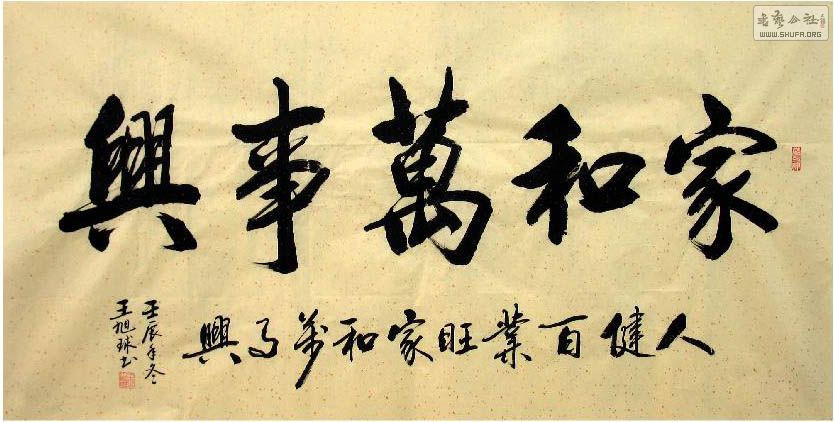 家和萬事興
人健百業旺家和萬事興
壬辰年冬
王旭球书
WWW.SHUFA.ORG